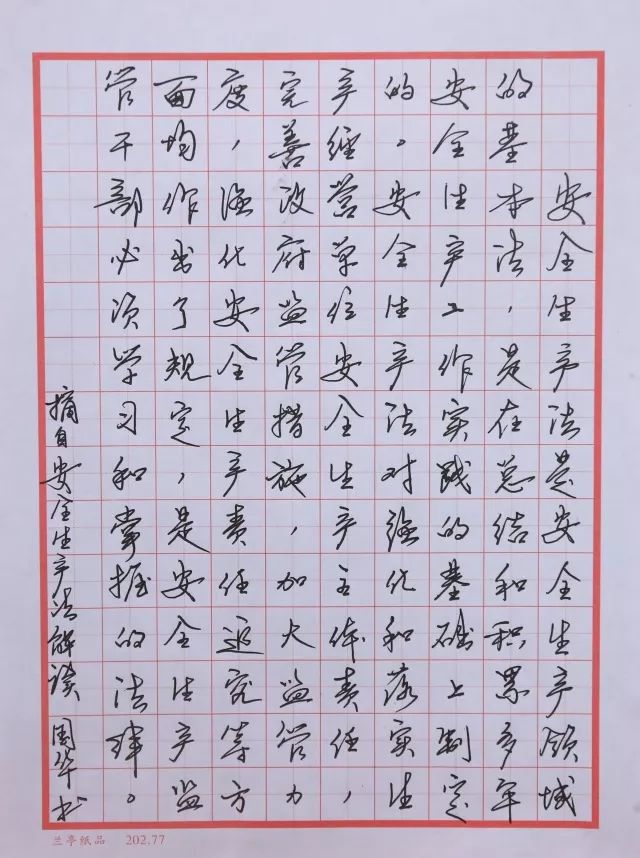 安全生产法是安全生产领域
的基本法，是在总结和积累多年
安全生产工作实践的基础上制定
的。安全生产法对强化和落实生
产经营单位安全生产主体责任，
完善政府监管措施，加大监管力
度，强化安全生产责任追究等方
面均作出了规定，是安全生产监
管干部必须学习和掌握的法律。
摘自安全生产法解读 周华书
兰亭纸品 202.77